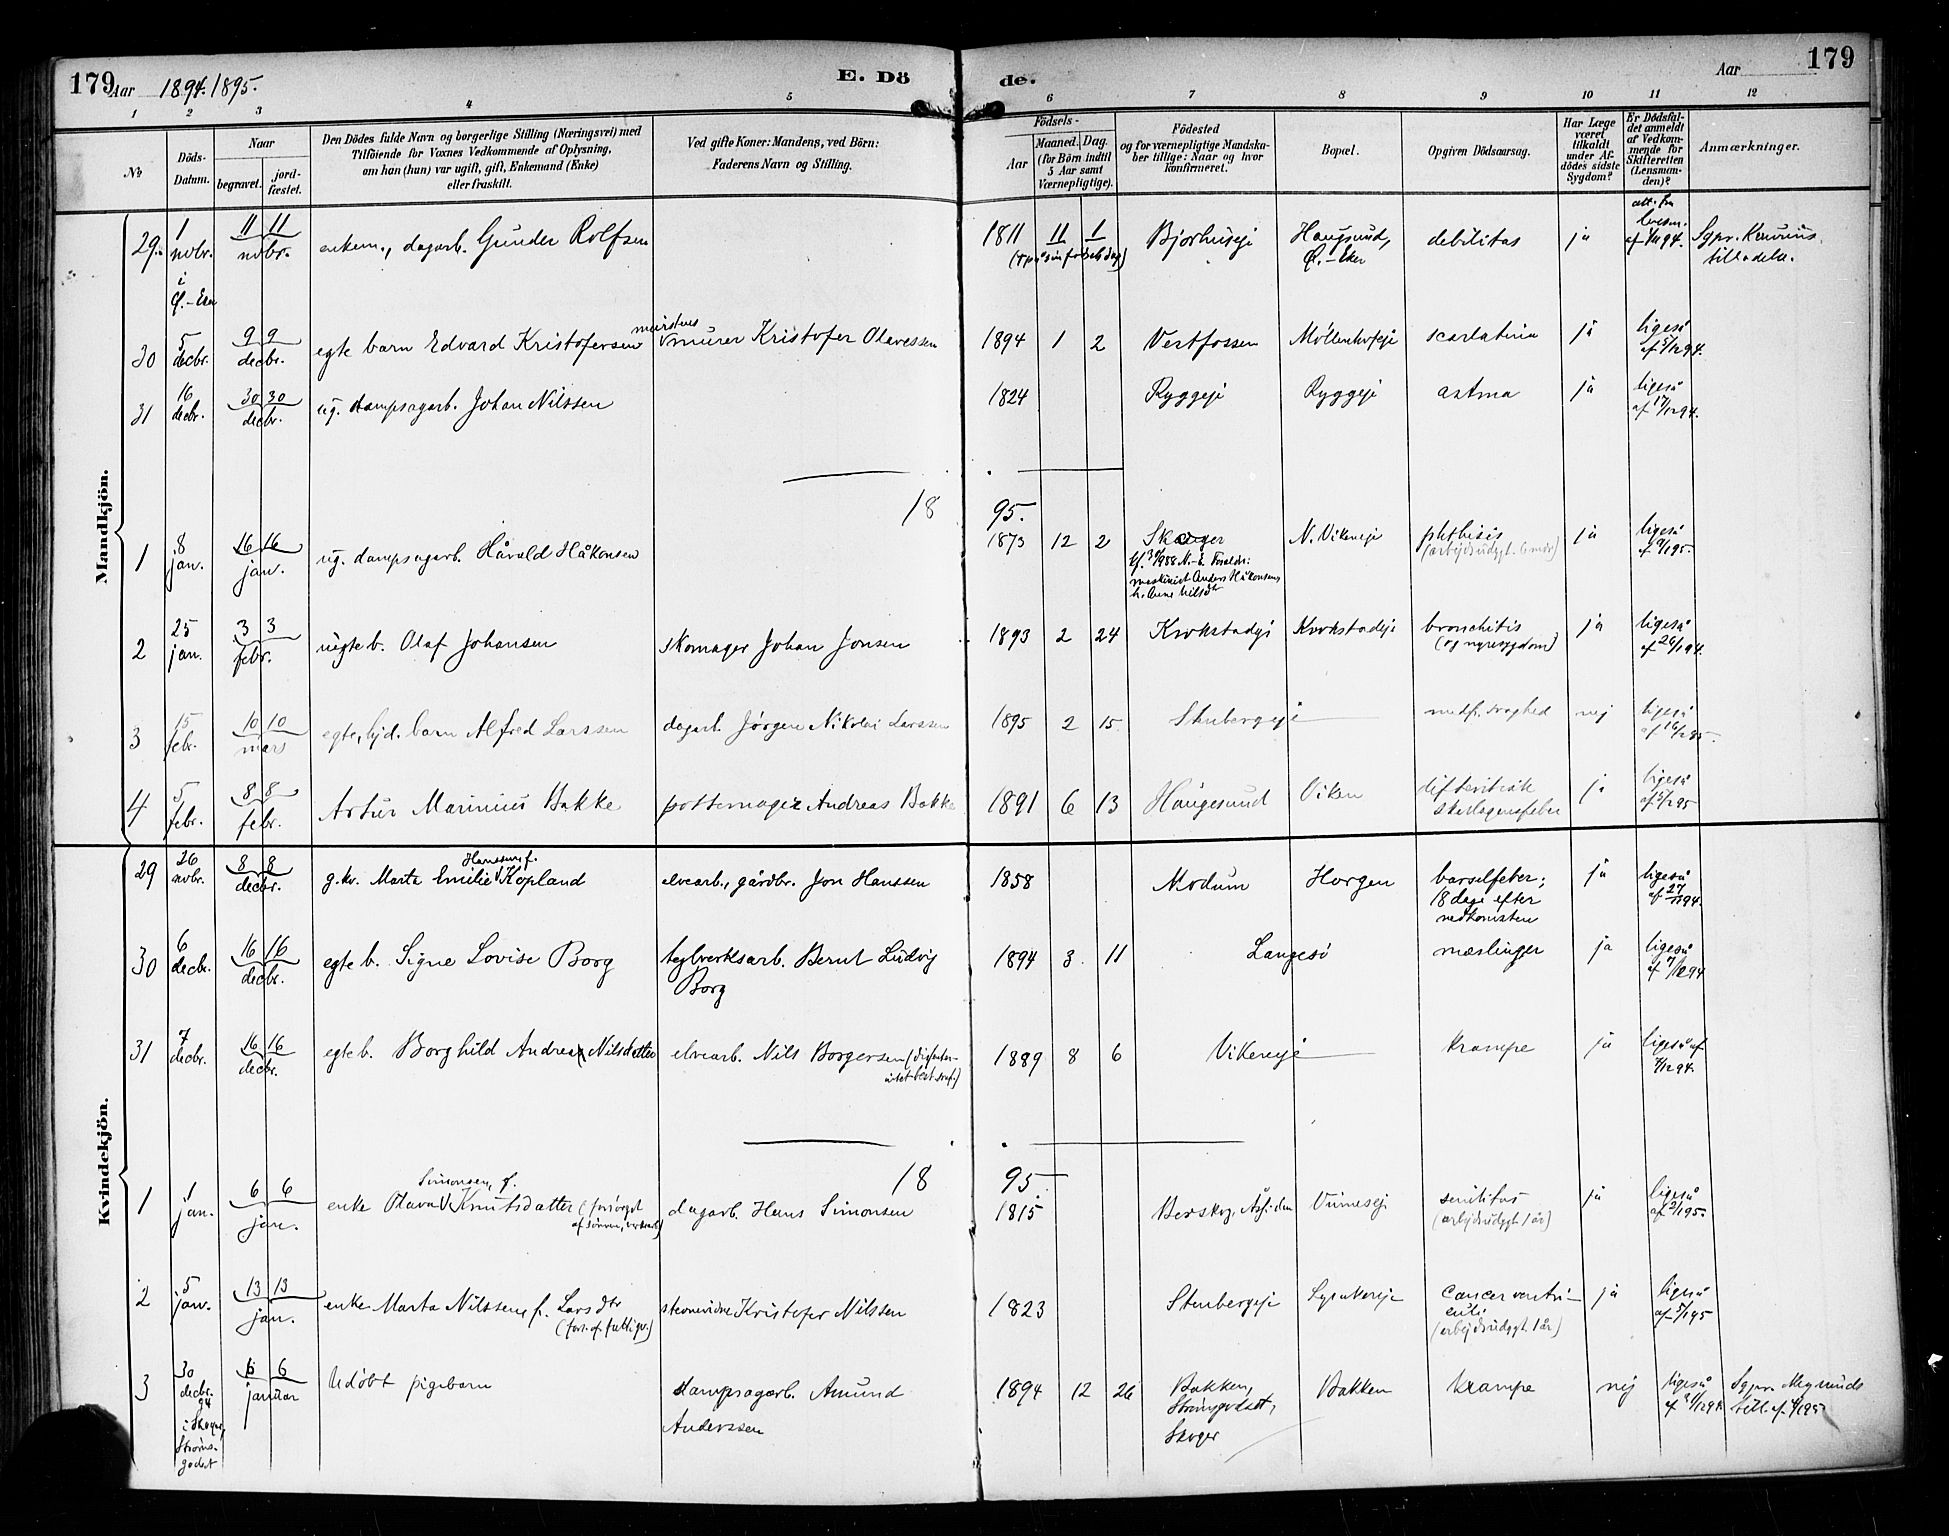 179
Aar 1894. 1895.
E. Dö
de.
Aar
179
1 2 3 4 5 6 7 8 9 10 11 12
No
Döds-Datum.
Naar
begravet. jord-fæstet.
Den Dödes fulde Navn og borgerlige Stilling (Næringsvei) med
Tilföiende for Voxnes Vedkommende af Oplysning,
om han (hun) var ugift, gift, Enkemand (Enke)
eller fraskilt.
Ved gifte Koner: Mandens, ved Börn:
Faderens Navn og Stilling.
Födsels-
Aar
Maaned. Dag.
(for Börn indtil
5 Aar samt
Værnepligtige).
Födested
og for værnepligtige Mandska-
ber tillige: Naar og hvor
konfirmeret.
Bopæl.
Opgiven Dödsaarsag.
Har Læge
været
tilkaldt
under Af-
dödes sidste
Sygdom?
Er Dödsfal-
det anmeldt
af Vedkom-
mende for
Skifteretten
(Lensman-
den)?
Anmærkninger.
Mandkjön.
29 1 novbr. i Ø.-Eker 11 11 novbr. enkem., dagarb. Gunder Rolfsen 1811 11 1 Bjørhuseje Haugsund, Ø.-Eker debilitas ja att. fra lensm.
30 5 decbr. 9 9 decbr. egte barn Edvard Kristofersen murer Kristofer Olavessen 1894 1 2 Vestfossen scarlatina ja ligeså af 5/12 94.
31 16 decbr. 30 30 decbr. ug. dampsagarb. Johan Nilssen 1824 Ryggeje Ryggeje astma ja ligeså af 17/12 94.
1895.
1 8 jan. 16 16 jan. ug. dampsagarb. Håvald Håkonsen 1873 12 2 Skoger N. Vikeneje phthisis ja ligeså af 9/1 95.
(arbejdsudygt. 6 mdr)
maskinist Anders Håkonsen,
2 25 jan. 3 3 febr. uegte b. Olaf Johansen skomager Johan Jonsen 1893 2 24 Krokstadeje Krokstadeje bronchitis (og nyresygdom) ja ligeså af 26/1 94.
3 15 febr. 10 10 mars egte, hjd. barn Alfred Larssen dagarb. Jørgen Nikolai Larssen 1895 2 15 Stenbergeje medf. svaghed nej ligeså
4 5 febr. 8 8 febr. Artur Marinius Bakke pottemager Andreas Bakke 1891 6 13 Haugesund Viken difteritisk skarlagensfeber ja ligeså af 5/2 95
Kvindekjön.
29 26 novbr. 8 8 decbr. g.kv. Marta Emilie Hanssen, f. Kopland elvearb., gårdbr. Jon Hanssen 1858 Modum Horgen barselfeber; 18 dage efter nedkomsten ja ligeså af 27/11 94.
30 6 decbr. 16 16 decbr. egte b. Signe Lovise Borg teglverksarb. Bernt Ludvig Borg 1894 3 11 Langesø mæslinger ja ligeså af 7/12 94
31 7 decbr. 16 16 decbr. egte b. Borghild Andrea Nilsdatter elvearb. Nils Borgersen 1889 8 6 Vikeneje krampe ja ligeså af
1895
1 1 jan. 6 6 jan. enke Olava Simonsen, f. Knutsdatter (forsørget af sønnen, dagarb. Hans Simonsen 1815 senilitas (arbejdsudygt. 1 år) ja ligeså af 2/1 95.
2 5 jan. 13 13 jan. enke Marta Nilssen, f. Larsdtr (fors. af fattigv.) Kristofer Nilssen 1823 Stenbergeje cancer ventriculi (arbejdsudygt. 1 år) ja ligeså af 5/1 95
3 30 decbr. 94 i Skoger, Strømsgodset 6 6 januar Udøbt pigebarn dampsagarb. Amund Anderssen 1894 12 26 Bakken, Strømsgodset, Skoger Bakken krampe nej ligeså